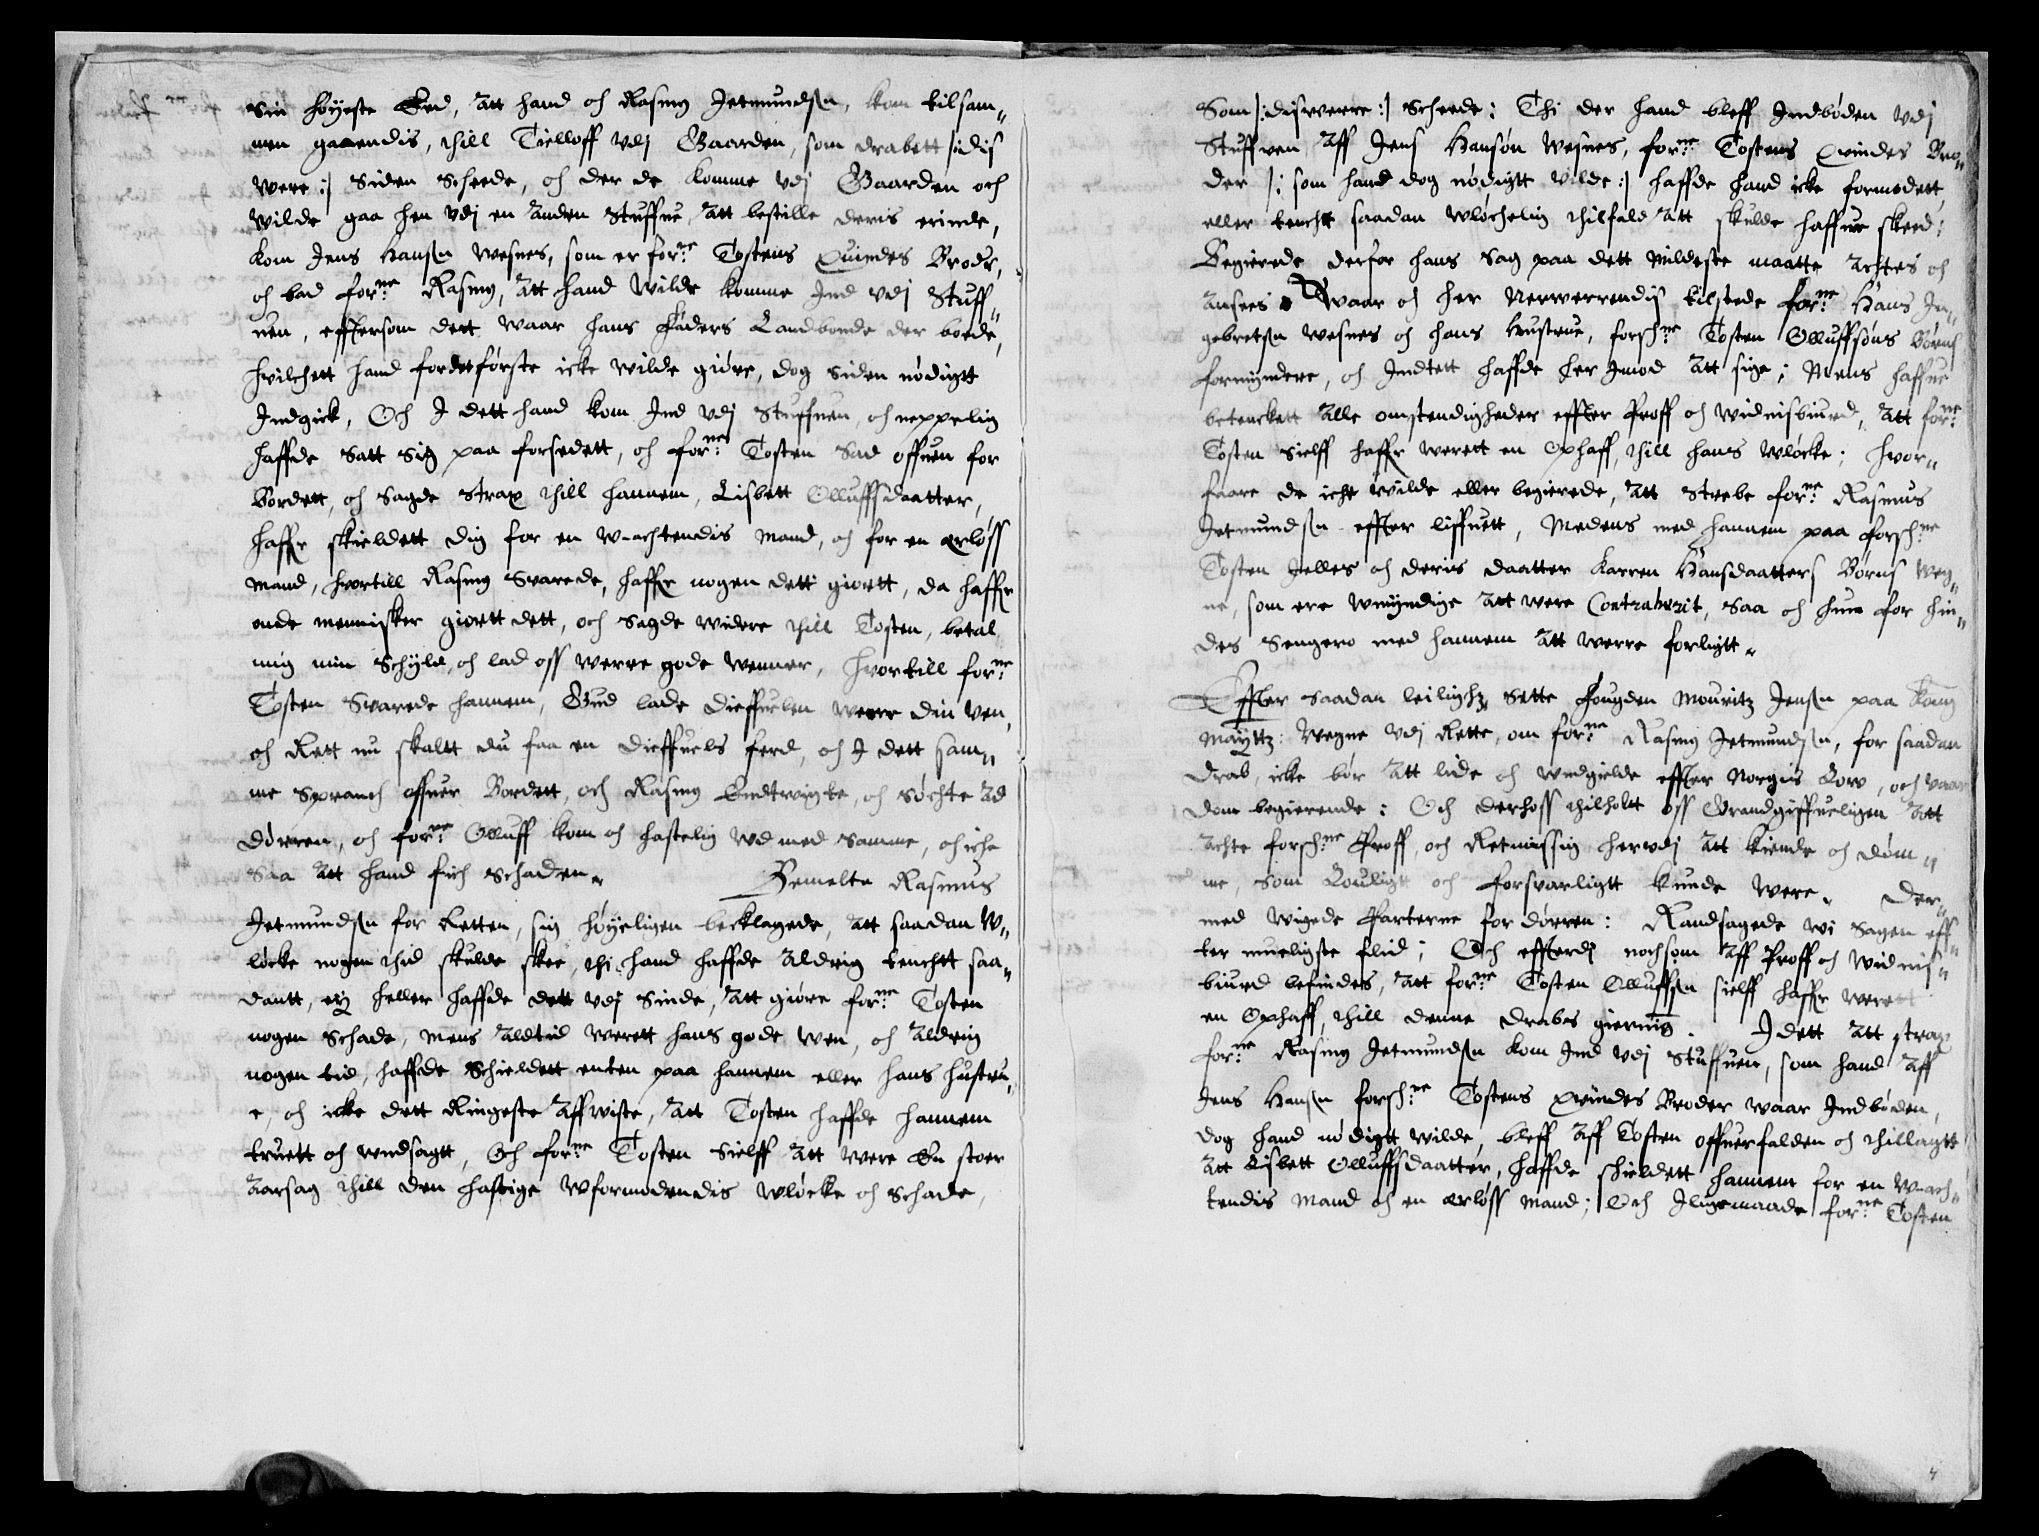 Sin høyeste Eed, Att hand och Rasmus Jetmundsn, kom tilsam„
men gaaendis, thill Tielloff vdj Gaarden, som drabett |:dis
were:| Siden Scheede, och der de komme vdj Gaarden och
wilde gaa hen vdj en Anden Stuffue, Att bestille deris erinde,
kom Jens Hansn Wesnes, som er forne Tostens Quindes Brodr,
och bad forne Rasmus, Att hand wilde komme Ind vdj Stuff„
uen, efftersom dett waar hans Faders Landbonde der boede,
Huilchett hand fordetførste icke wilde giøre, dog siden nødigtt
Indgick, Och I dett hand kom Ind vdj Stuffuen, och neppelig
haffde Satt Sig paa forsedett, och forne Tosten Sad offuen for
Bordett, och Sagde Strax thill hannem, Lisbett Olluffsdaatter,
haffr skieldett dig for en W-achtendis Mand, och for en ærløss
Mand, Hvortill Rasmus Svarede, haffr nogen dett giortt, da haffr
onde mennisker giortt dett, och Sagde widere thill Tosten, betal
mig min Schyld, och lad oss werre gode wenner, Hvortill forne
Tosten Svarede hannem, Gud lade Dieffuelen werre din Ven,
och Rett nu skaltt du faa en Dieffuels ferd, och I dett sam„
me Spranch offuer Bordett, och Rasmus Endtwigte, och Søchte Ad
dørren, och forne Olluff kom och hastelig wd med Samme, och iche
Saa Att hand fich Schaden.          Bemelte Rasmus
Jetmundsn for Retten, sig høyeligen becklagede, Att saadan W„
løcke nogen thid skulde skee, thi hand haffde Aldrig tencht saa„
dantt, eij heller haffde dett vdj Sinde, Att giøre forne Tosten
nogen Schade, Mens Altid werett hans gode wen, och Aldrig
nogen tid, haffde Schieldett enten paa hannem eller hans hustru„
e, och icke dett Ringeste Affwiste, Att Tosten haffde hannem
truett och wndsagtt, Och forne Tosten Sielff Att were En stoer
Aarsag thill den hastige Wformodendis Wløcke och Schade,
Som |:disverre:| Scheede: Thi der hand bleff Indbøden vdj
Stuffuen Aff Jens Hansøn Wesnes, forne Tostens Quindes Bro„
der |: som hand dog nødigtt vilde:| haffde hand icke formodett,
eller tencht saadan Wløchelig thilfald Att skulde haffue skeed:
Begierede derfor hans Sag paa dett Mildeste maatte Achtes och
Ansees. Waar och her Nerwerrendis tilstede forne Hans In„
gebretsn Wesnes och hans Hustrue, forschne Tosten Olluffsøns Børns
formyndere, och Indtett haffde her Imod Att sige; Mens haffue
betenckett Alle omstendigheder effter Proff och Widnisbiurd, Att forne
Tosten Sielff haffr werett en Ophaff, thill hans Wløcke; Hvor„
faare de icht wilde eller begierede, Att Strebe forne Rasmus
Jetmundsn effter liffuett, Medens med hannem paa forschne
Tosten Jelles och deris Daatter Karren Hansdaatters Børns Weg„
ne, som ere Wmyndige Att were Contraherit, Saa och hun for hin„
des Sengero med hannem Att werre forligtt.
Effter saadan leilighz, Sette Fougden Mouritz Jensn paa Kong
Mayttz: Wegne vdj Rette, om forne Rasmus Jetmundsn, for saadan
Drab, icke bør Att lide och vndgielde effter Norgis Low, och vaar
Dom begierende: Och derhoss thilholtt oss Grandgiffueligen Att
Achte forschne Proff, och Retmessig hervdj Att kiende och døm„
me, Som Louligt och forsvarligtt kunde were. Der„
med wigede Parterne for dørren: Randsagede wi Sagen eff„
ter mueligste flid; Och effterdj nochsom Aff Proff och Widnis„
biurd befindes, Att forne Tosten Olluffsn sielff haffr werett
en Ophaff, thill denne Drabs gierning. I dett Att strax
forne Rasmus Jetmundsn kom Ind vdj Stuffuen, som hand Aff
Jens Hansn forschne Tostens Qvindes Broder waar Indbøden,
dog hand nødigtt wilde, bleff Aff Tosten offuerfalden och thillagtt
Att Lisbett Olluffsdaatter, haffde schieldett hannem for en W-ach„
tendis Mand och en ærløss Mand; Och I ligemaade forne Tosten